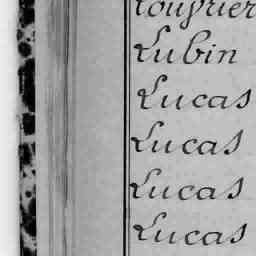 Lubin
Lucas
Lucas
Lucas
Lucas